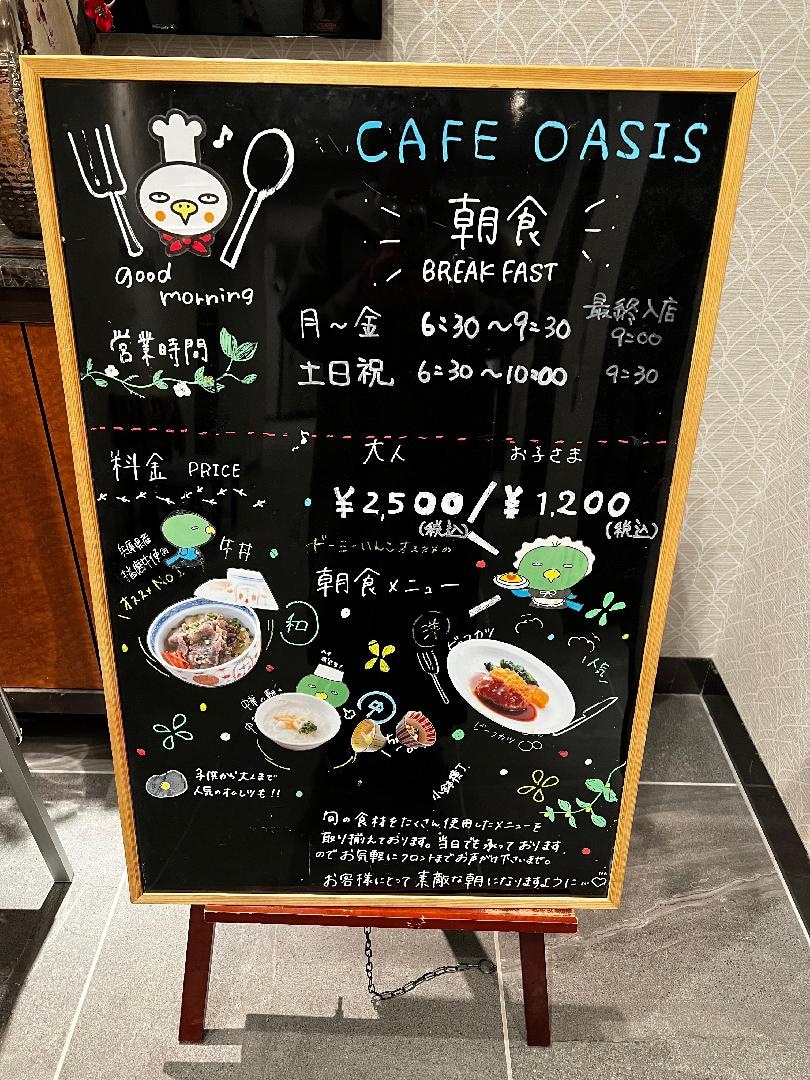 CAFE OASIS
朝食
BREAKFAST
good
morning
営業時間
最終入店
月～金 6:30～9:30 9:00
土日祝 6:30～10:00 9:30
料金 PRICE
大人 お子さま
¥2,500/¥1,200
(税込) (税込)
兵庫県産
牛使用
オススメNo.1
牛丼
オススメの
朝食メニュー
和
洋
ビーフカツ
人気
中
ビーフカツ
小鉢横丁
子供から大人まで
人気のオムレツも!!
旬の食材をたくさん使用したメニューを
取り揃えております。当日でも承っております
のでお気軽にフロントまでお声がけ下さいませ。
お客様にとって素敵な朝になりますように…♡